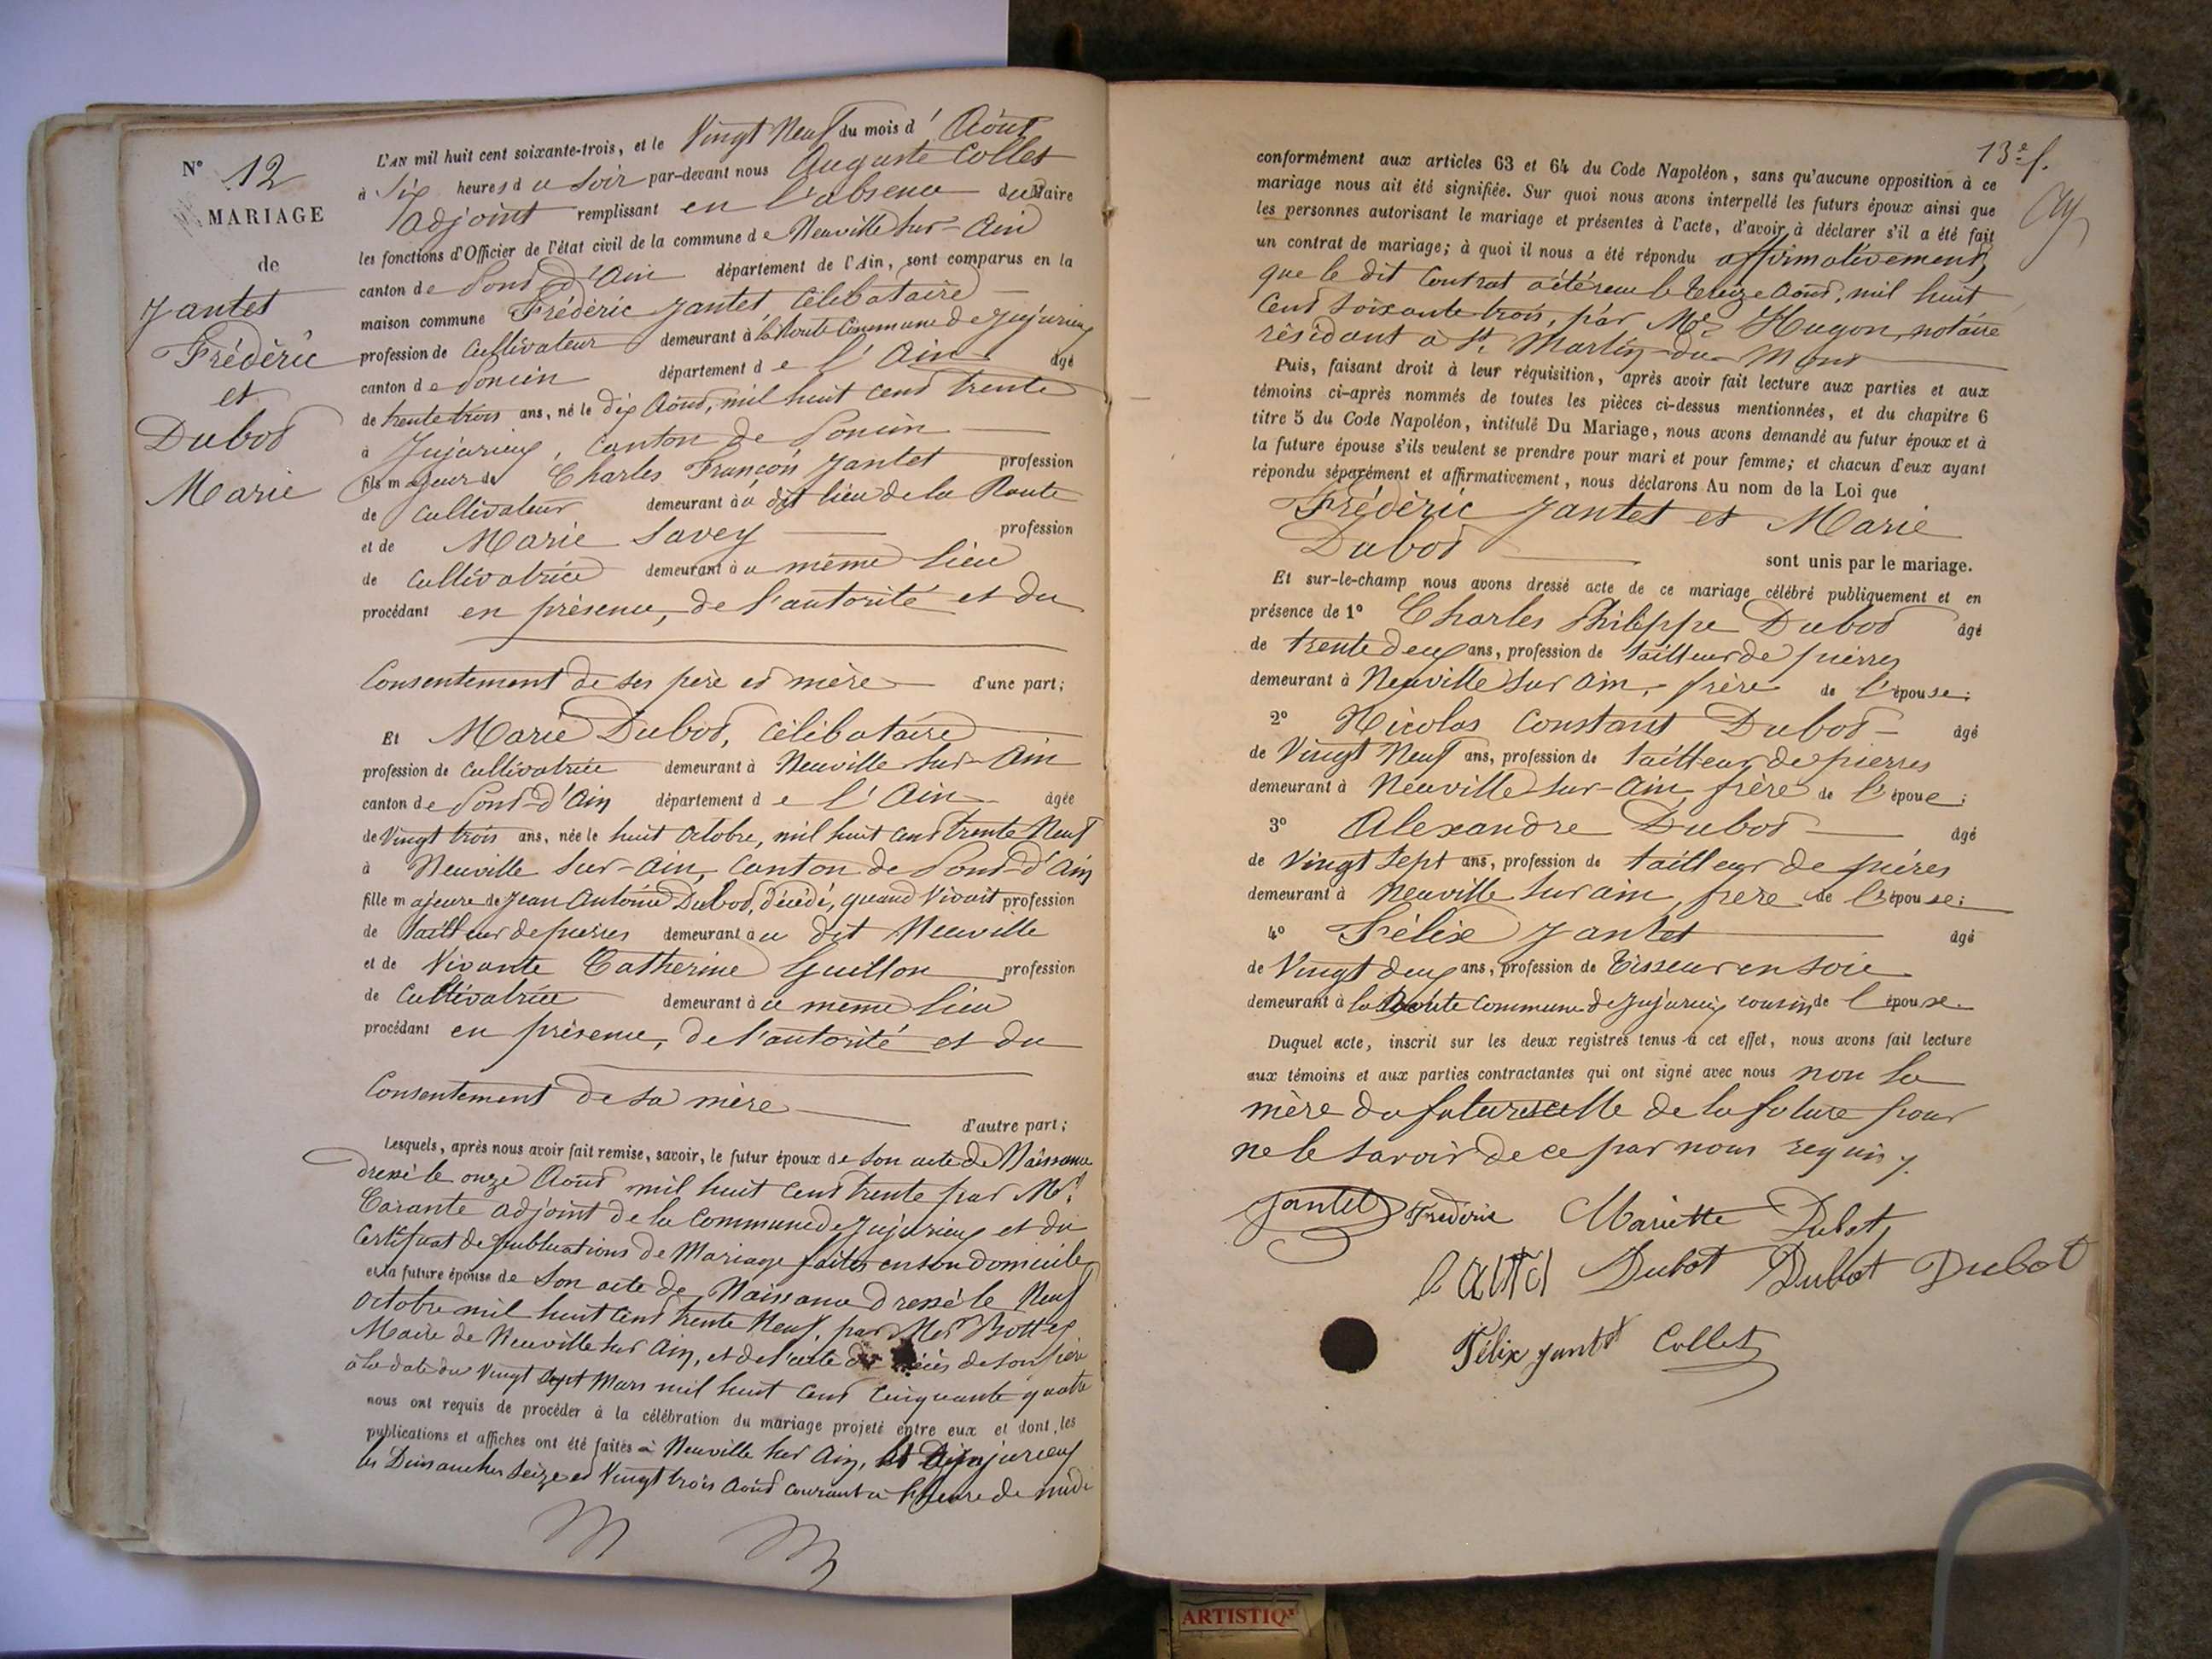 N° 12
MARIAGE
de
Jantet
Frédéric
et
Dubot
Marie
L'AN mil huit cent soixante-trois, et le Vingt Neuf du mois d'Août
à Six heures du Soir par-devant nous Auguste Collet
adjoint remplissant en l'absence du Maire
les fonctions d'Officier de l'état civil de la commune de Neuville sur-Ain
canton de Pont d'Ain département de l'Ain, sont comparus en la
maison commune Frédéric Jantet, célibataire
profession de Cultivateur demeurant à la Route Commune de Jujurieux
canton de Poncin département de l'Ain âgé
de trente trois ans, né le dix Août, mil huit cent trente
à Jujurieux, Canton de Poncin
fils majeur de Charles François Jantet profession
de Cultivateur demeurant au dit lieu de la Route
et de Marie Savey profession
de Cultivatrice demeurant au même lieu
procédant en présence, de l'autorité et du
Consentement de ses père et mère d'une part;
Et Marie Dubot, célibataire
profession de Cultivatrice demeurant à Neuville sur-Ain
canton de Pont-d'Ain département de l'Ain âgée
de Vingt trois ans, née le huit Octobre, mil huit cent trente Neuf
à Neuville sur-ain, Canton de Pont-d'Ain
fille majeure de Jean Antoine Dubot, décédé, quand Vivait profession
de tailleur de pierres demeurant au dit Neuville
et de Vivante Catherine Guillon profession
de Cultivatrice demeurant au même lieu
procédant en présence, de l'autorité et du
Consentement de sa mère
d'autre part;
Lesquels, après nous avoir fait remise, savoir, le futur époux de son acte de Naissance
dressé le onze Août mil huit cent trente par Mr
adjoint de la Commune de Jujurieux et du
Certificat de publications de Mariage faites en son domicile
et la future épouse de son acte de Naissance dressé le Neuf
Octobre mil huit cent trente Neuf, par
Maire de Neuville sur Ain, et de l'acte de décès de son père
à la date du Vingt Sept Mars mil huit cent cinquante quatre
nous ont requis de procéder à la célébration du mariage projeté entre eux et dont les
publications et affiches ont été faites à Neuville sur Ain, et Jujurieux
les Dimanches seize et Vingt trois Août courant à l'heure de midi
13e f.
conformément aux articles 63 et 64 du Code Napoléon, sans qu'aucune opposition à ce
mariage nous ait été signifiée. Sur quoi nous avons interpellé les futurs époux ainsi que
les personnes autorisant le mariage et présentes à l'acte, d'avoir à déclarer s'il a été fait
un contrat de mariage; à quoi il nous a été répondu affirmativement,
que le dit Contrat a été reçu le treize Août, mil huit
Cent soixante trois, par Me Hugon, notaire
résidant à St Martin-du-Mont
Puis, faisant droit à leur réquisition, après avoir fait lecture aux parties et aux
témoins ci-après nommés de toutes les pièces ci-dessus mentionnées, et du chapitre 6
titre 5 du Code Napoléon, intitulé Du Mariage, nous avons demandé au futur époux et à
la future épouse s'ils veulent se prendre pour mari et pour femme; et chacun d'eux ayant
répondu séparément et affirmativement, nous déclarons Au nom de la Loi que
Frédéric Jantet et Marie
Dubot
sont unis par le mariage.
Et sur-le-champ nous avons dressé acte de ce mariage célébré publiquement et en
présence de 1° Charles Philippe Dubot âgé
de trente deux ans, profession de tailleur de pierres
demeurant à Neuville sur ain, frère de l'épouse;
2° Nicolas Constant Dubot âgé
de Vingt Neuf ans, profession de tailleur de pierres
demeurant à Neuville sur-ain, frère de l'épouse;
3° Alexandre Dubot âgé
de Vingt Sept ans, profession de tailleur de pierres
demeurant à Neuville sur ain, frère de l'épouse;
4° Félix Jantet âgé
de Vingt deux ans, profession de Tisseur en soie
demeurant à la Route Commune de Jujurieux cousin de l'épouse
Duquel acte, inscrit sur les deux registres tenus à cet effet, nous avons fait lecture
aux témoins et aux parties contractantes qui ont signé avec nous non la
mère du futur celle de la future pour
ne le savoir de ce par nous requis.
Jantet Frédéric Mariette Dubot
Dubot Dubot Dubot
Félix Jantet Collet
ARTISTIQ